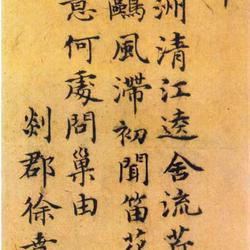 洲清江遶舍流
鷗風滯初聞笛花
意何處問巢由
剡郡徐